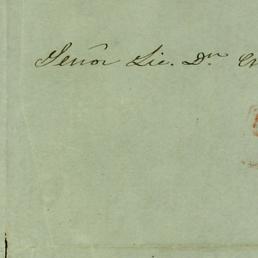 Señor Lic. Dn